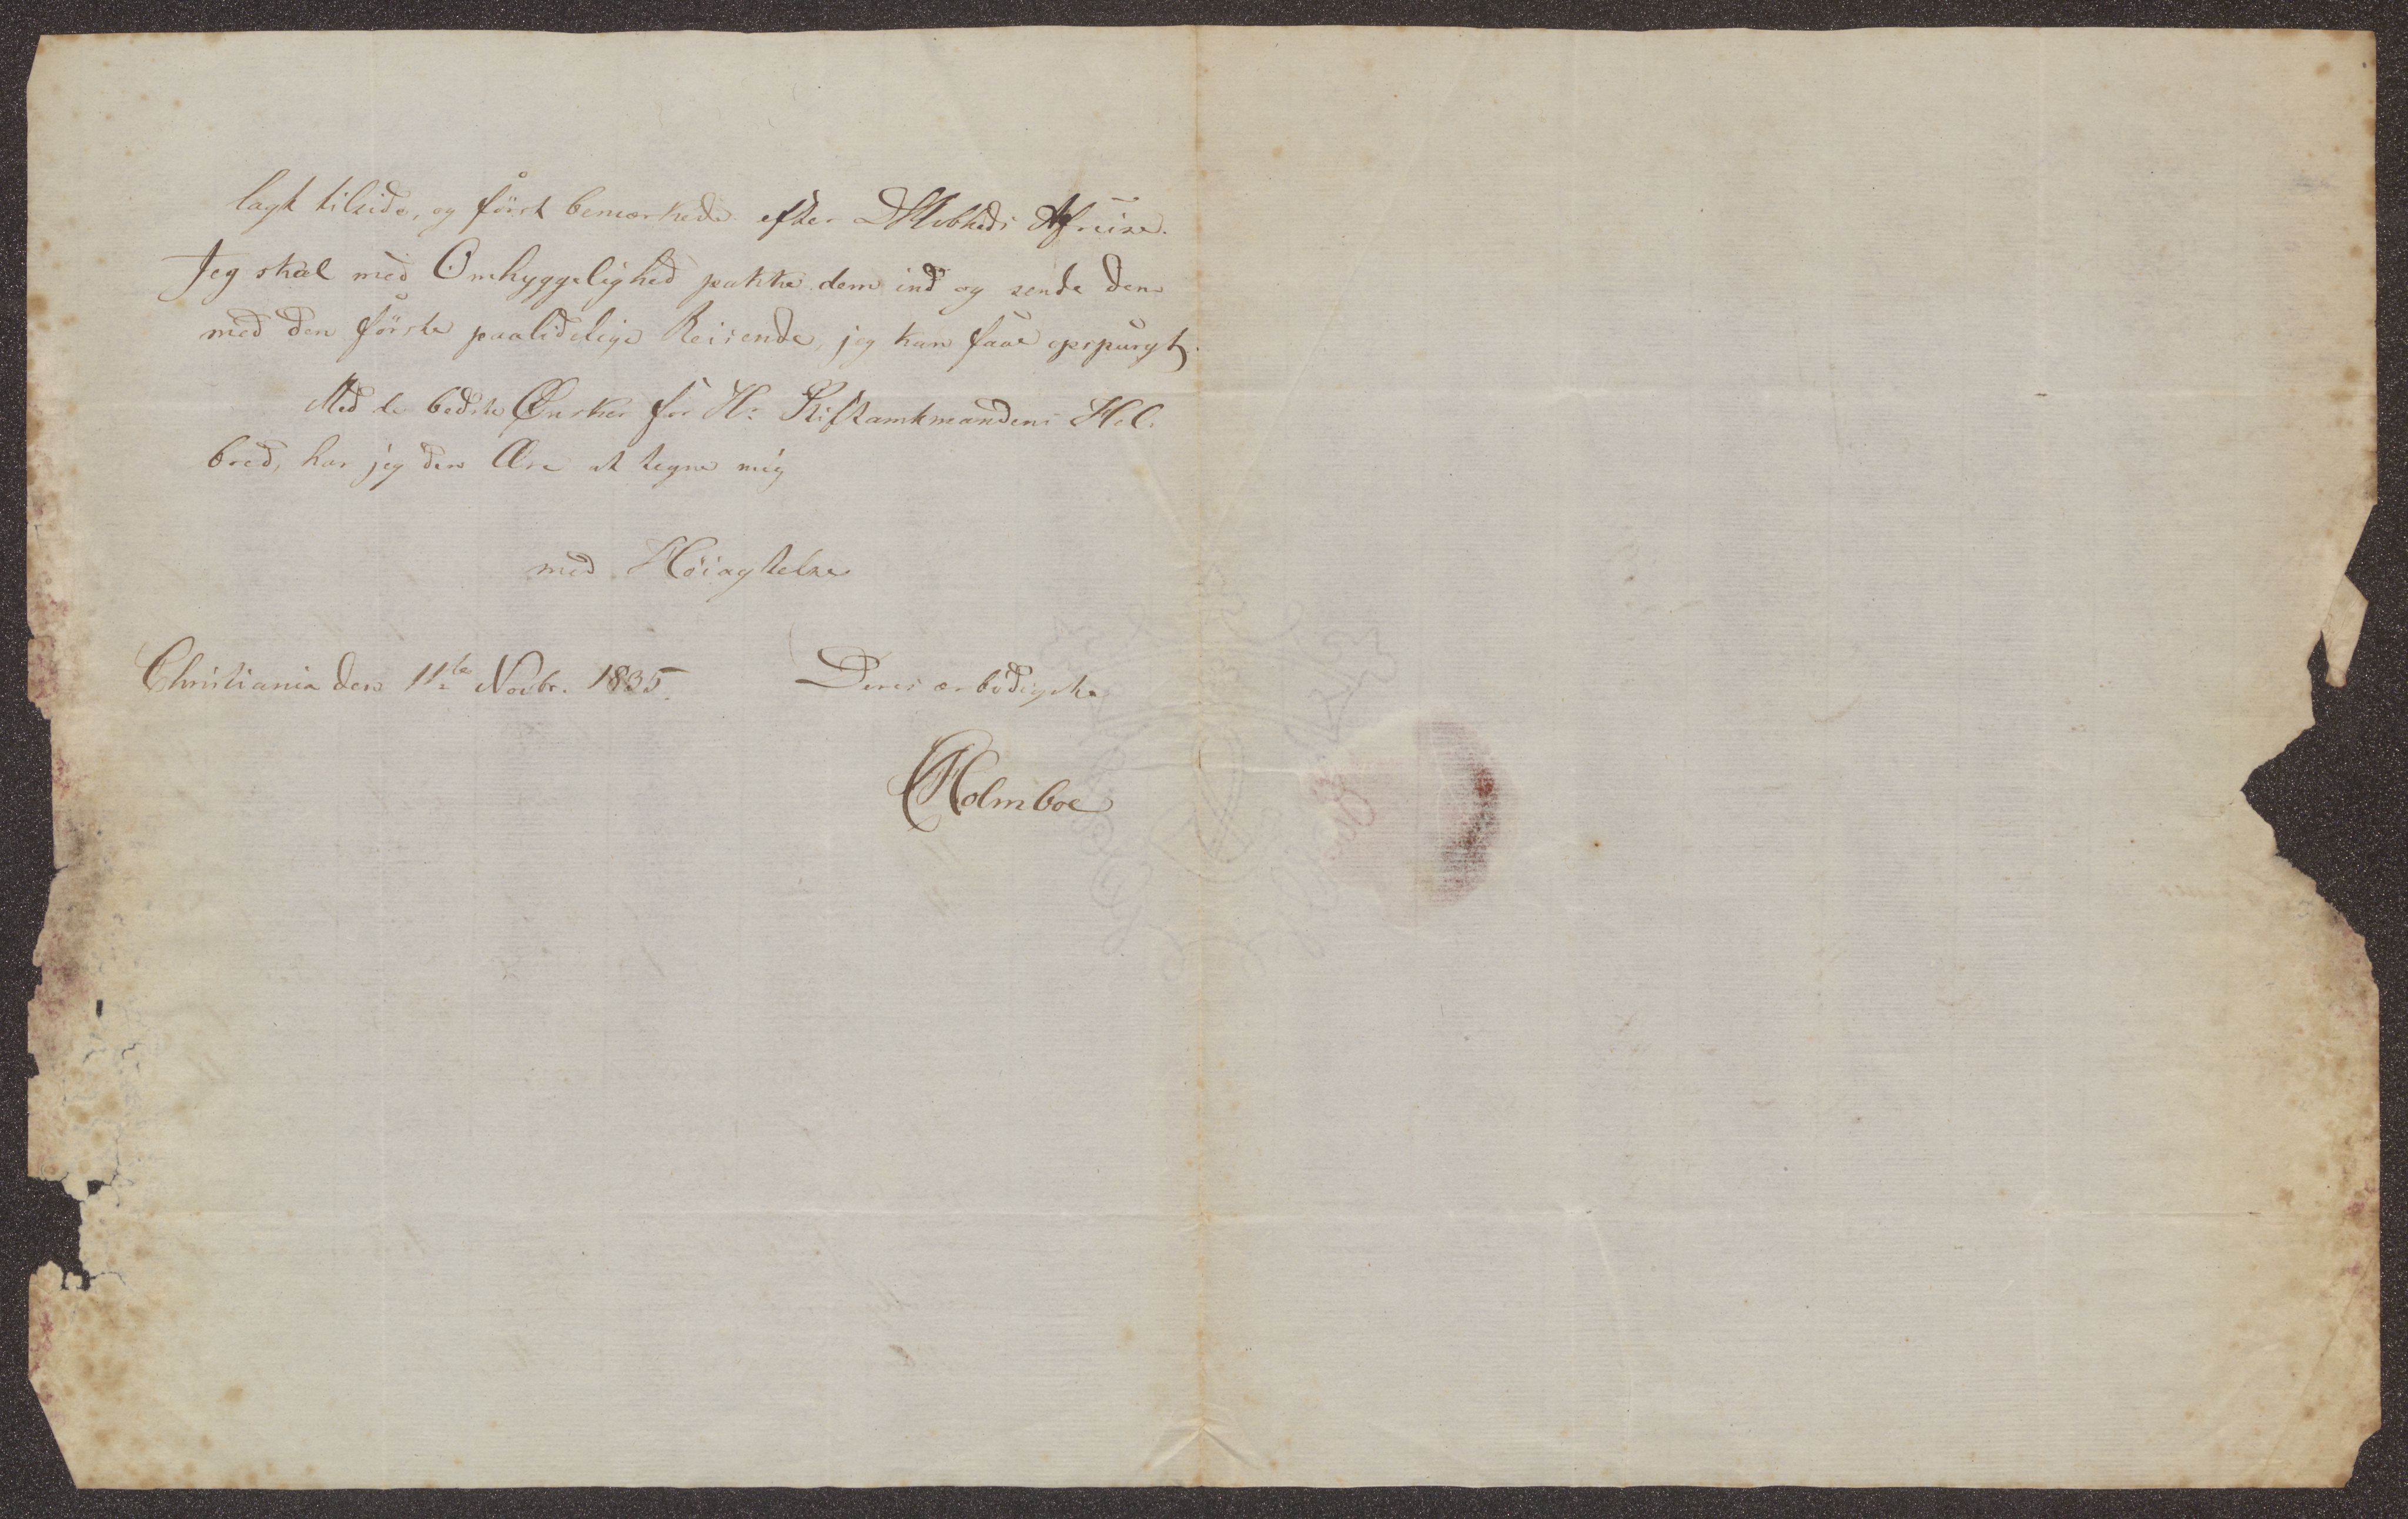 lagt tilside, og først bemærkede efter Afreise.
Jeg skal med Omhyggelighed pakke dem ind og sende dem
med den første paalidelige Reisende, jeg kan faae opspurgt.
Med de bedste Ønsker for Hr Stiftamtmandens Hel-
bred, har jeg den Ære at tegne mig
med Høiagtelse
Christiania den 11te Novbr. 1835.
Deres ærbødigste
Holmboe